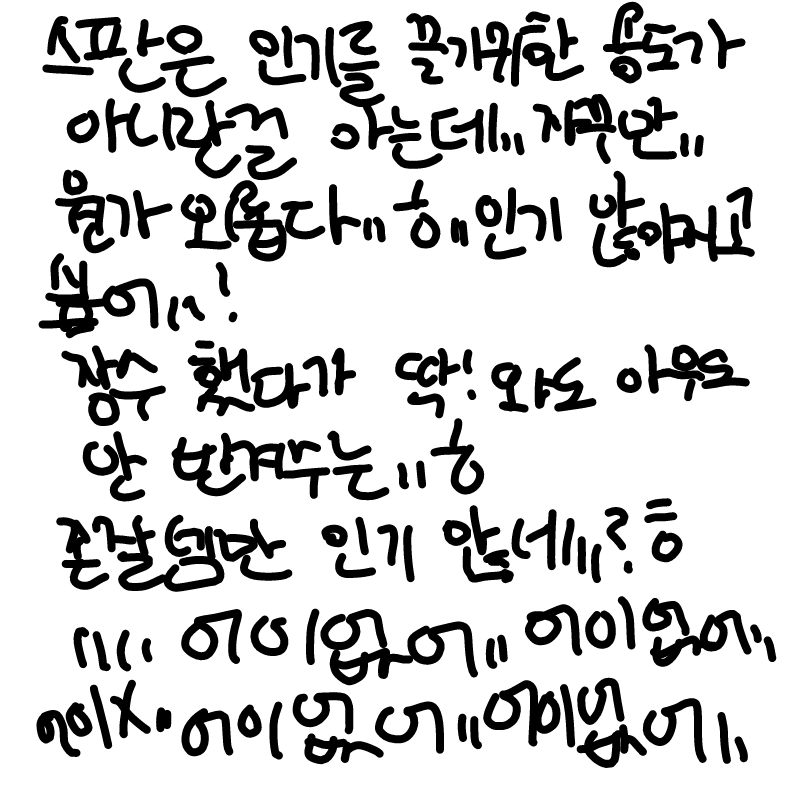 스판은 인기를 끌기위한 용도가
아니란걸 아는데,, 자꾸만,,
뭔가 오웁다,, ㅎ,, 인기 많아지고
싶어,,!
잠수 했다가 딱! 와도 아무도
안 반겨주는,, ㅎ
존잘님만 인기 많네,,,? ㅎ
,,,, 어이없어,, 어이없어,,
어이X,, 어이없어,, 어이없어,,